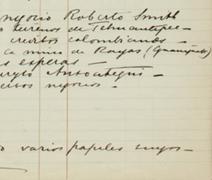 negocio Roberto Smith
terrenos de Tehuantepec
creditos colombianos —
mina de Rayas (Guanajuato)
esperas —
negocios —
varios papeles suyos —